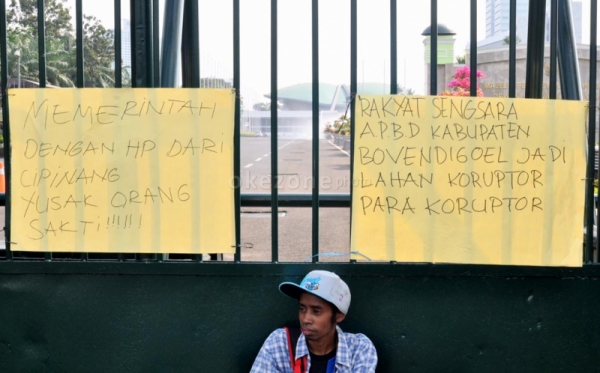 MEMERINTAH
DENGAN HP DARI
CIPINANG
YUSAK ORANG
SAKTI!!!!!!
RAKYAT SENGSARA
APBD KABUPATEN
BOVENDIGOEL JADI
LAHAN KORUPTOR
PARA KORUPTOR
okezone